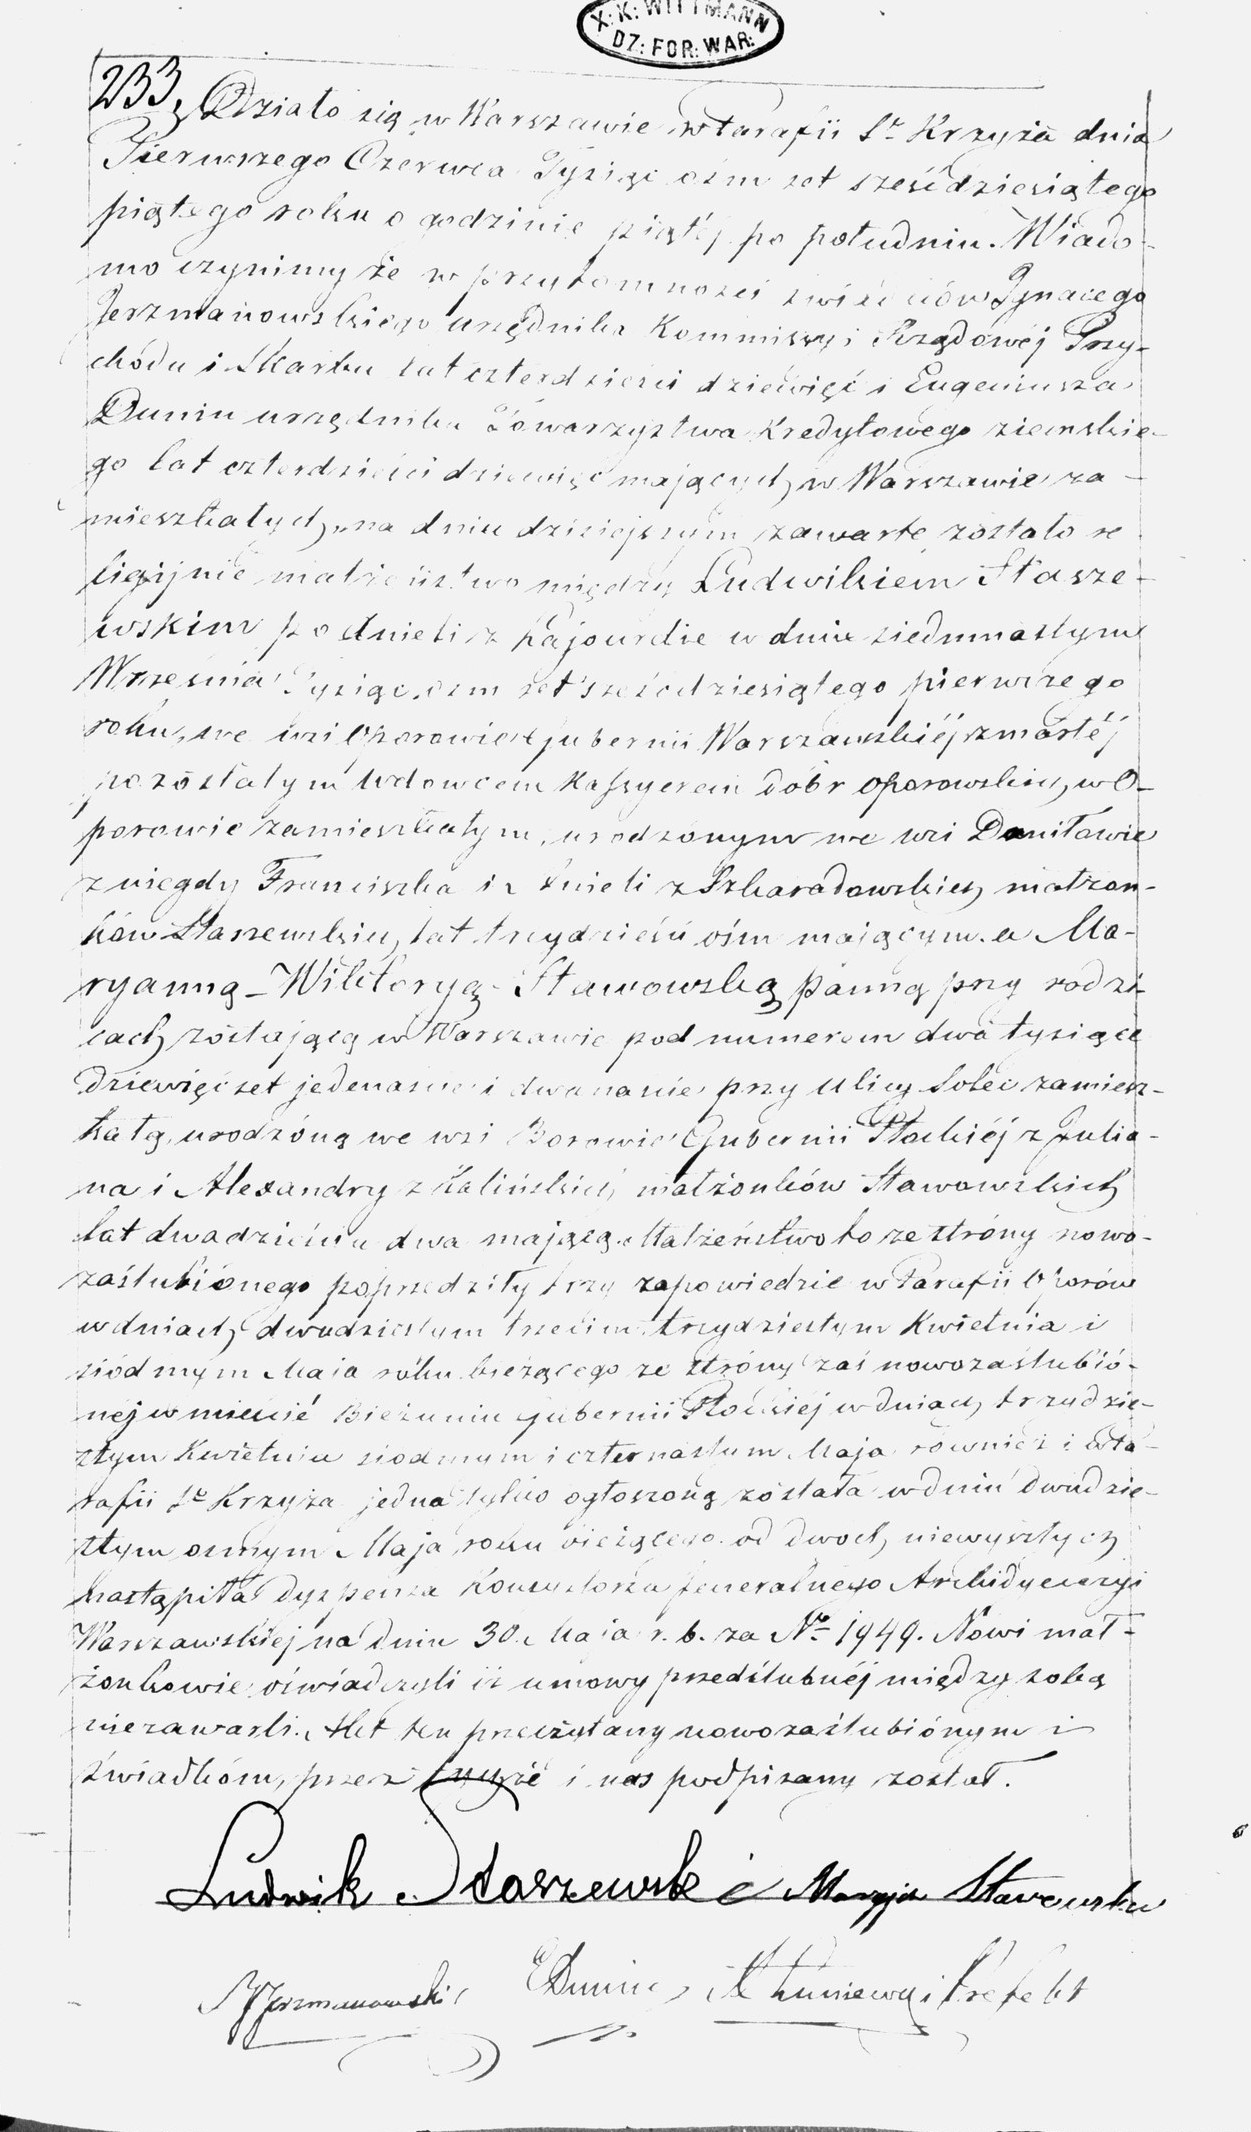 X: K: WITTMANN
DZ: FOR: WAR:
233, Działo się w Warszawie w Parafii Sº Krzyża dnia
Pierwszego Czerwca Tysiąc ośm set sześćdziesiątego
piątego roku o godzinie piątéj po południu. Wiado-
mo czynimy że w przytomności świadków Ignacego
Jerzmanowskiego urzędnika Kommissyi Rządowéj Przy-
chodu i Skarbu lat czterdzieści dziewięć i Eugeniusza
Dunin urzędnika Towarzystwa Kredytowego ziemskie-
go lat czterdzieści dziewięć mających, w Warszawie za-
mieszkałych, na dniu dzisiejszym zawarte zostało re
ligijnie małżeństwo między Ludwikiem Stasze-
wskim po Anieli z w dniu siedmnastym
Września Tysiąc ośm set sześćdziesiątego pierwszego
roku, we wsi Oporowie Gubernii Warszawskiéj zmarłéj
pozostałym wdowcem Kassyerem dóbr Oporowskich, w O-
porowie zamieszkałym, urodzonym we wsi Daniławie
z niegdy Franciszka i Anieli z Szkaradowskich małżon-
ków Staszewskich, lat trzydzieści ośm mającym. a Ma-
ryanną-Wiktoryą Stawowską panną przy rodzi-
cach zostającą w Warszawie pod numerem dwa tysiące
dziewięćset jedenaście i dwanaście przy ulicy Solec zamiesz-
kałą, urodzoną we wsi Borowie Gubernii Płockiéj z Julia-
na i Alexandry z Kalińskich małżonków Stawowskich
lat dwadzieścia dwa mającą. Małżeństwo to ze strony nowo-
zaślubionego poprzedziły trzy zapowiedzie w Parafii Oporów
w dniach dwudziestym trzecim, trzydziestym Kwietnia i
siódmym Maja roku bieżącego ze strony zaś nowozaślubió-
nej w mieście Bieżuniu Gubernii Płockiéj w dniach trzydzie-
stym Kwietnia siódmym i czternastym Maja również i w Pa-
rafii Sº Krzyża jedna tylko ogłoszoną została w dniu dwudzie-
stym osmym Maja roku bieżącego. od dwóch niewyszłych
nastąpiła dyspensa Konsystorza Jeneralnego Archidyecezyi
Warszawskiej na dniu 30. Maja r. b. za Nº 1949. Nowi mał-
żonkowie oświadczyli iż umowy przedślubnéj między sobą
niezawarli. Akt ten przeczytany nowozaślubiónym i
świadkom, przez i nas podpisany został.
Ludwik Staszewski Maryja Stawowska
Jerzmanowski EDunin Prefekt